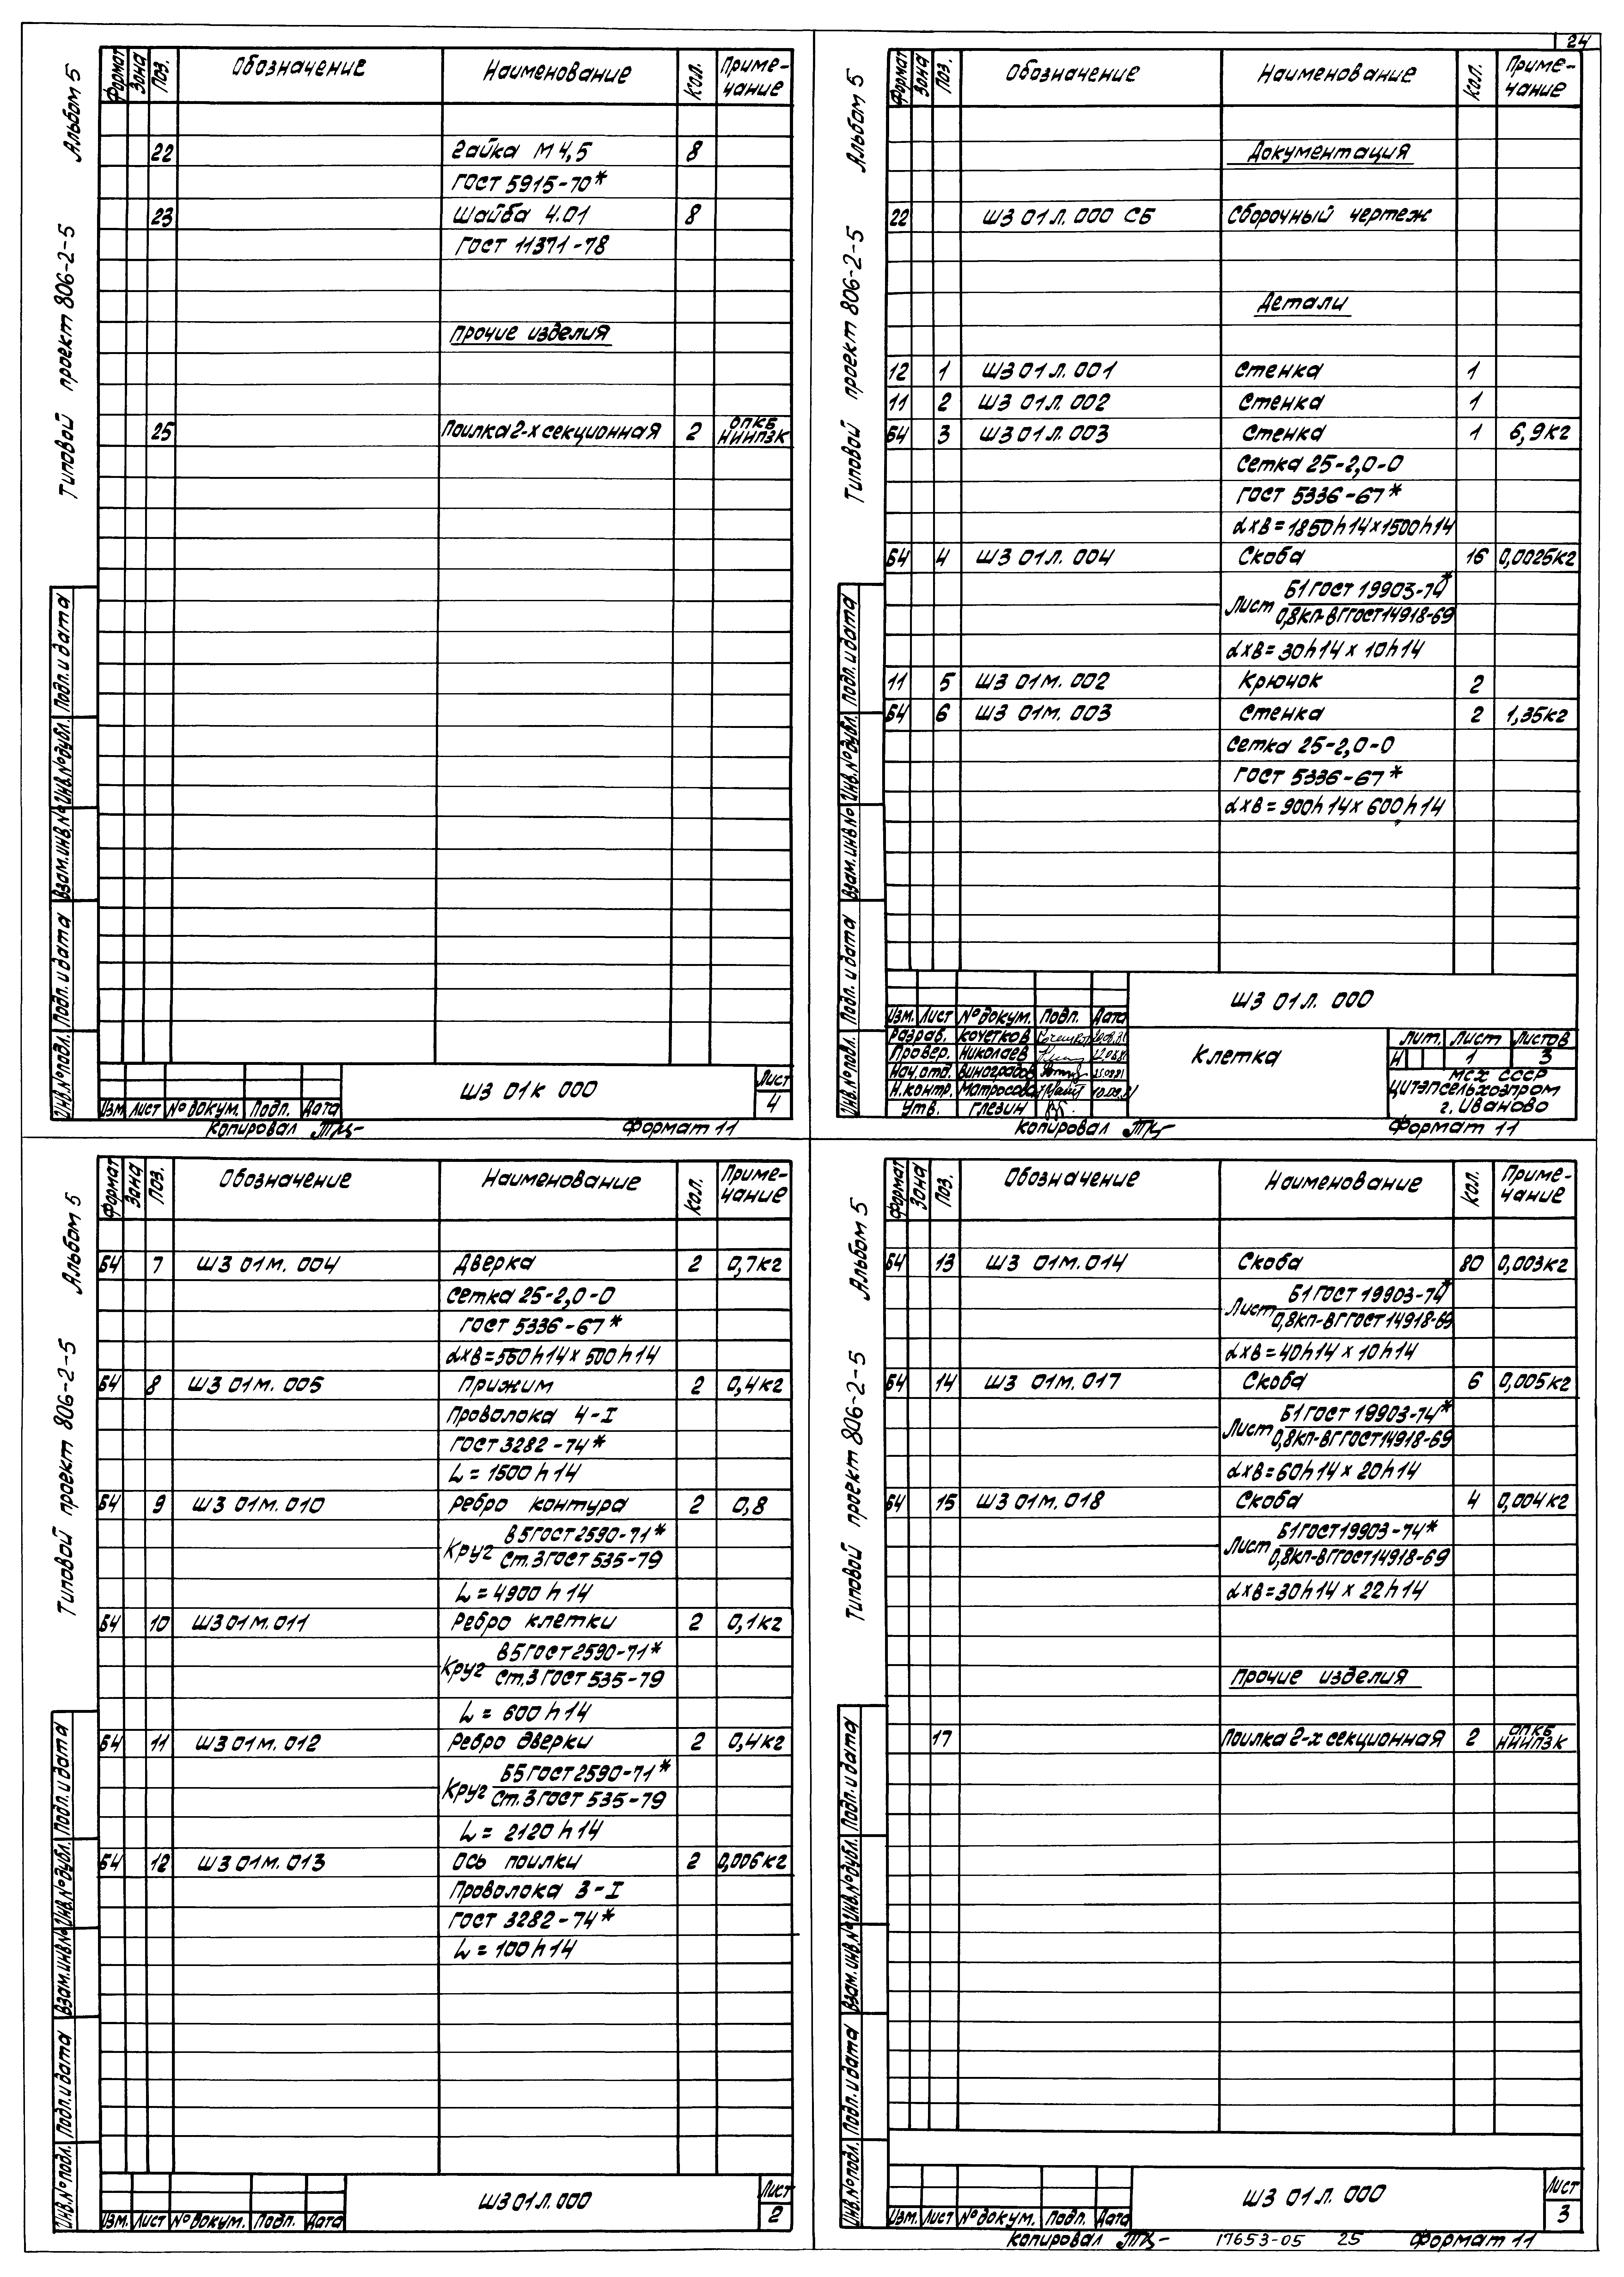 24
Альбом 5
Типовой проект 806-2-5
Формат Зона Поз. Обозначение Наименование Кол. Примечание
22 Гайка М 4,5 8
ГОСТ 5915-70*
23 Шайба 4.01 8
ГОСТ 11371-78
Прочие изделия
25 Поилка 2-х секционная 2 ОПКБ НИИПЗК
Инв.№подл. Подп. и дата Взам.инв.№ Инв.№дубл. Подп. и дата
ШЗ 01К 000
Лист
4
Изм. Лист № докум. Подп. Дата
Копировал
Формат 11
Альбом 5
Типовой проект 806-2-5
Формат Зона Поз. Обозначение Наименование Кол. Примечание
Документация
22 ШЗ 01Л.000 СБ Сборочный чертеж
Детали
12 1 ШЗ 01Л.001 Стенка 1
11 2 ШЗ 01Л.002 Стенка 1
Б4 3 ШЗ 01Л.003 Стенка 1 6,9кг
Сетка 25-2,0-0
ГОСТ 5336-67*
αхВ=1850h14х1500h14
Б4 4 ШЗ 01Л.004 Скоба 16 0,0025кг
Б1 ГОСТ 19903-74*
Лист
0,8КП-ВГ ГОСТ 14918-69
αхВ=30h14 х 10h14
11 5 ШЗ 01М.002 Крючок 2
Б4 6 ШЗ 01М.003 Стенка 2 1,35кг
Сетка 25-2,0-0
ГОСТ 5336-67*
αхВ=900h14х 600h14
Инв.№подл. Подп. и дата Взам.инв.№ Инв.№дубл. Подп. и дата
ШЗ 01Л.000
Изм. Лист № докум. Подп. Дата
Разраб. Кочетков
Провер. Николаев
Нач.отд. Виноградов
Н.контр. Матросова
Утв. Глезин
Клетка
Лит. Лист Листов
И 1 3
МСХ СССР
ЦИТЭПсельхозпром
г. Иваново
Копировал
Формат 11
Альбом 5
Типовой проект 806-2-5
Формат Зона Поз. Обозначение Наименование Кол. Примечание
Б4 7 ШЗ 01М.004 Дверка 2 0,7кг
Сетка 25-2,0-0
ГОСТ 5336-67*
αхВ=550h14х 500h14
Б4 8 ШЗ 01М.005 Прижим 2 0,4кг
Проволока 4-I
ГОСТ 3282-74*
L=1500h14
Б4 9 ШЗ 01М.010 Ребро контура 2 0,8
В5 ГОСТ 2590-71*
Круг
Ст.3 ГОСТ 535-79
L=4900h14
Б4 10 ШЗ 01М.011 Ребро клетки 2 0,1кг
В5 ГОСТ 2590-71*
Круг
Ст.3 ГОСТ 535-79
L=600h14
Б4 11 ШЗ 01М.012 Ребро дверки 2 0,4кг
Б5 ГОСТ 2590-71*
Круг
Ст.3 ГОСТ 535-79
L=2120h14
Б4 12 ШЗ 01М.013 Ось поилки 2 0,006кг
Проволока 3-I
ГОСТ 3282-74*
L=100h14
Инв.№подл. Подп. и дата Взам.инв.№ Инв.№дубл. Подп. и дата
ШЗ 01Л.000
Лист
2
Изм. Лист № докум. Подп. Дата
Альбом 5
Типовой проект 806-2-5
Формат Зона Поз. Обозначение Наименование Кол. Примечание
Б4 13 ШЗ 01М.014 Скоба 80 0,003кг
Б1 ГОСТ 19903-74*
Лист
0,8КП-ВГ ГОСТ 14918-69
αхВ=40h14 х 10h14
Б4 14 ШЗ 01М.017 Скоба 6 0,005кг
Б1 ГОСТ 19903-74*
Лист
0,8КП-ВГ ГОСТ 14918-69
αхВ=60h14 х 20h14
Б4 15 ШЗ 01М.018 Скоба 4 0,004кг
Б1 ГОСТ 19903-74*
Лист
0,8КП-ВГ ГОСТ 14918-69
αхВ=30h14 х 22h14
Прочие изделия
17 Поилка 2-х секционная 2 ОПКБ НИИПЗК
Инв.№подл. Подп. и дата Взам.инв.№ Инв.№дубл. Подп. и дата
ШЗ 01Л.000
Лист
3
Изм. Лист № докум. Подп. Дата
Копировал
17653-05 25 Формат 11